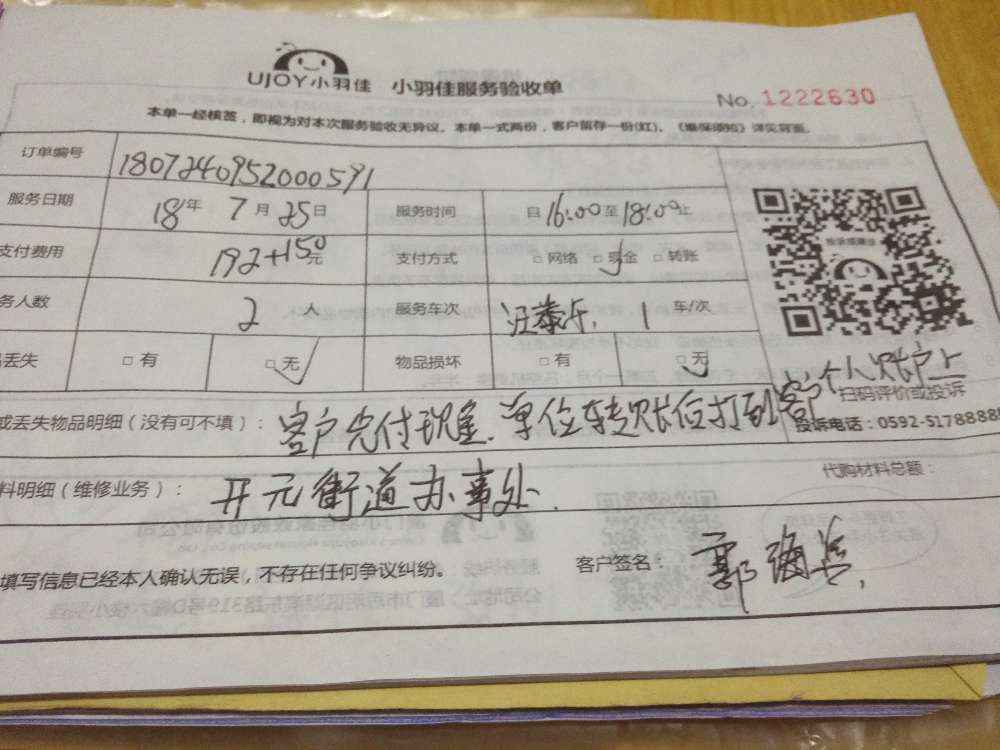 UJOY小羽佳 小羽佳服务验收单
No. 1222630
本单一经核签，即视为对本次服务验收无异议。本单一式两份，客户留存一份(红)。《维保须知》详见背面。
订单编号 1807240952000591
服务日期 18年 7月 25日 服务时间 自16:00至18:00止
支付费用 192+150元 支付方式 □网络 □现金 □转账
务人数 2人 服务车次 1 车/次
丢失 □有 □无 物品损坏 □有 □无
或丢失物品明细（没有可不填）： 客户先付现金.单位转账后打到客户个人账户上
扫码评价或投诉
投诉电话：0592-5178888
料明细（维修业务）： 开元街道办事处
代购材料总额：
填写信息已经本人确认无误，不存在任何争议纠纷。 客户签名： 郭海